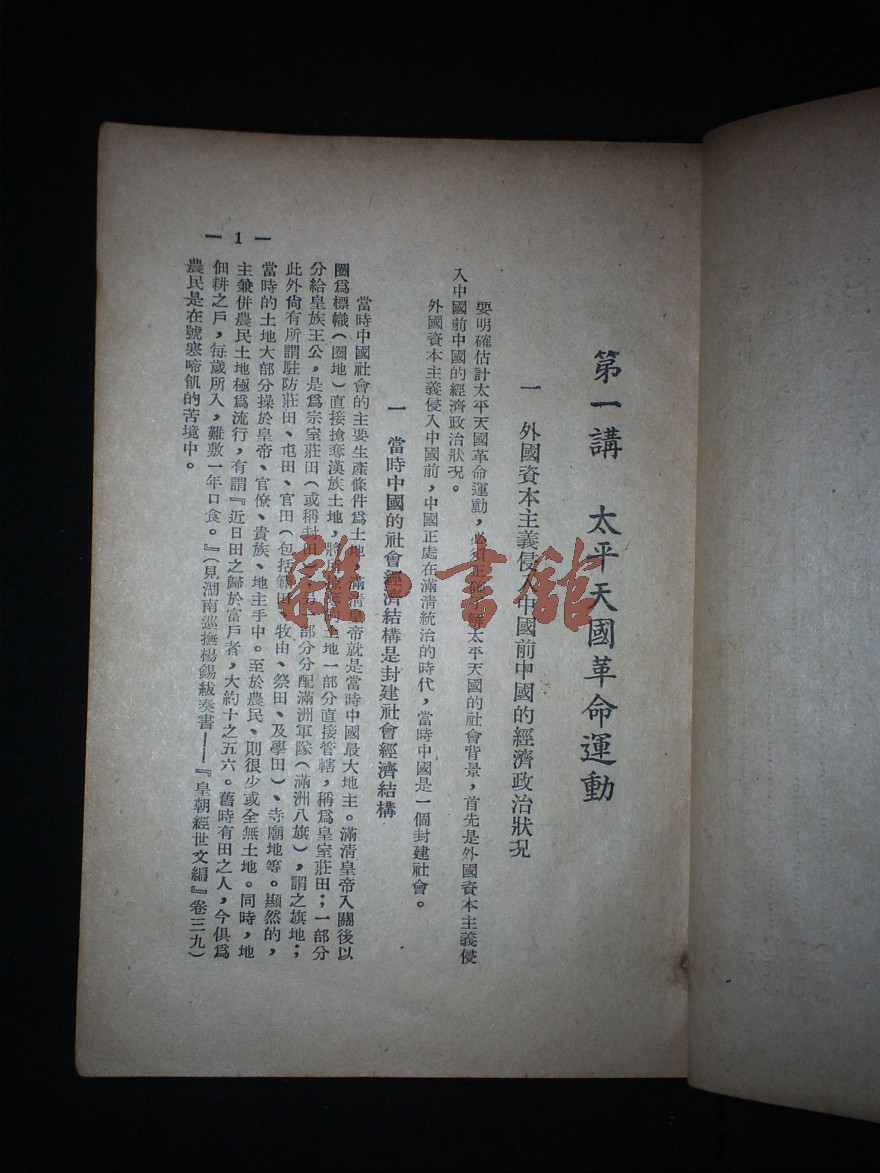 第一講　太平天國革命運動
一　外國資本主義侵入中國前中國的經濟政治狀況
要明確估計太平天國革命運動，必須正確了解太平天國的社會背景，首先是外國資本主義侵
入中國前中國的經濟政治狀況。
外國資本主義侵入中國前，中國正處在滿清統治的時代，當時中國是一個封建社會。
一　當時中國的社會經濟結構是封建社會經濟結構
當時中國社會的主要生產條件爲土地，滿清皇帝就是當時中國最大地主。滿清皇帝入關後以
圈爲標幟（圈地）直接搶奪漢族土地，將所 土地一部分直接管轄，稱爲皇室莊田；一部分
分給皇族王公，是爲宗室莊田（或稱封田 一部分分配滿洲軍隊（滿洲八旗），謂之旗地；
此外尙有所謂駐防莊田、屯田、官田（包括 田、牧由、祭田、及學田）、寺廟地等。顯然的，
當時的土地大部分操於皇帝、官僚、貴族、地主手中。至於農民、則很少或全無土地。同時，地
主兼併農民土地極爲流行，有謂『近日田之歸於富戶者，大約十之五六。舊時有田之人，今俱爲
佃耕之戶，每歲所入，難敷一年口食。』（見湖南巡撫楊錫紱奏書——『皇朝經世文編』卷三九）
農民是在號寒啼飢的苦境中。
— 1 —
雜·書館